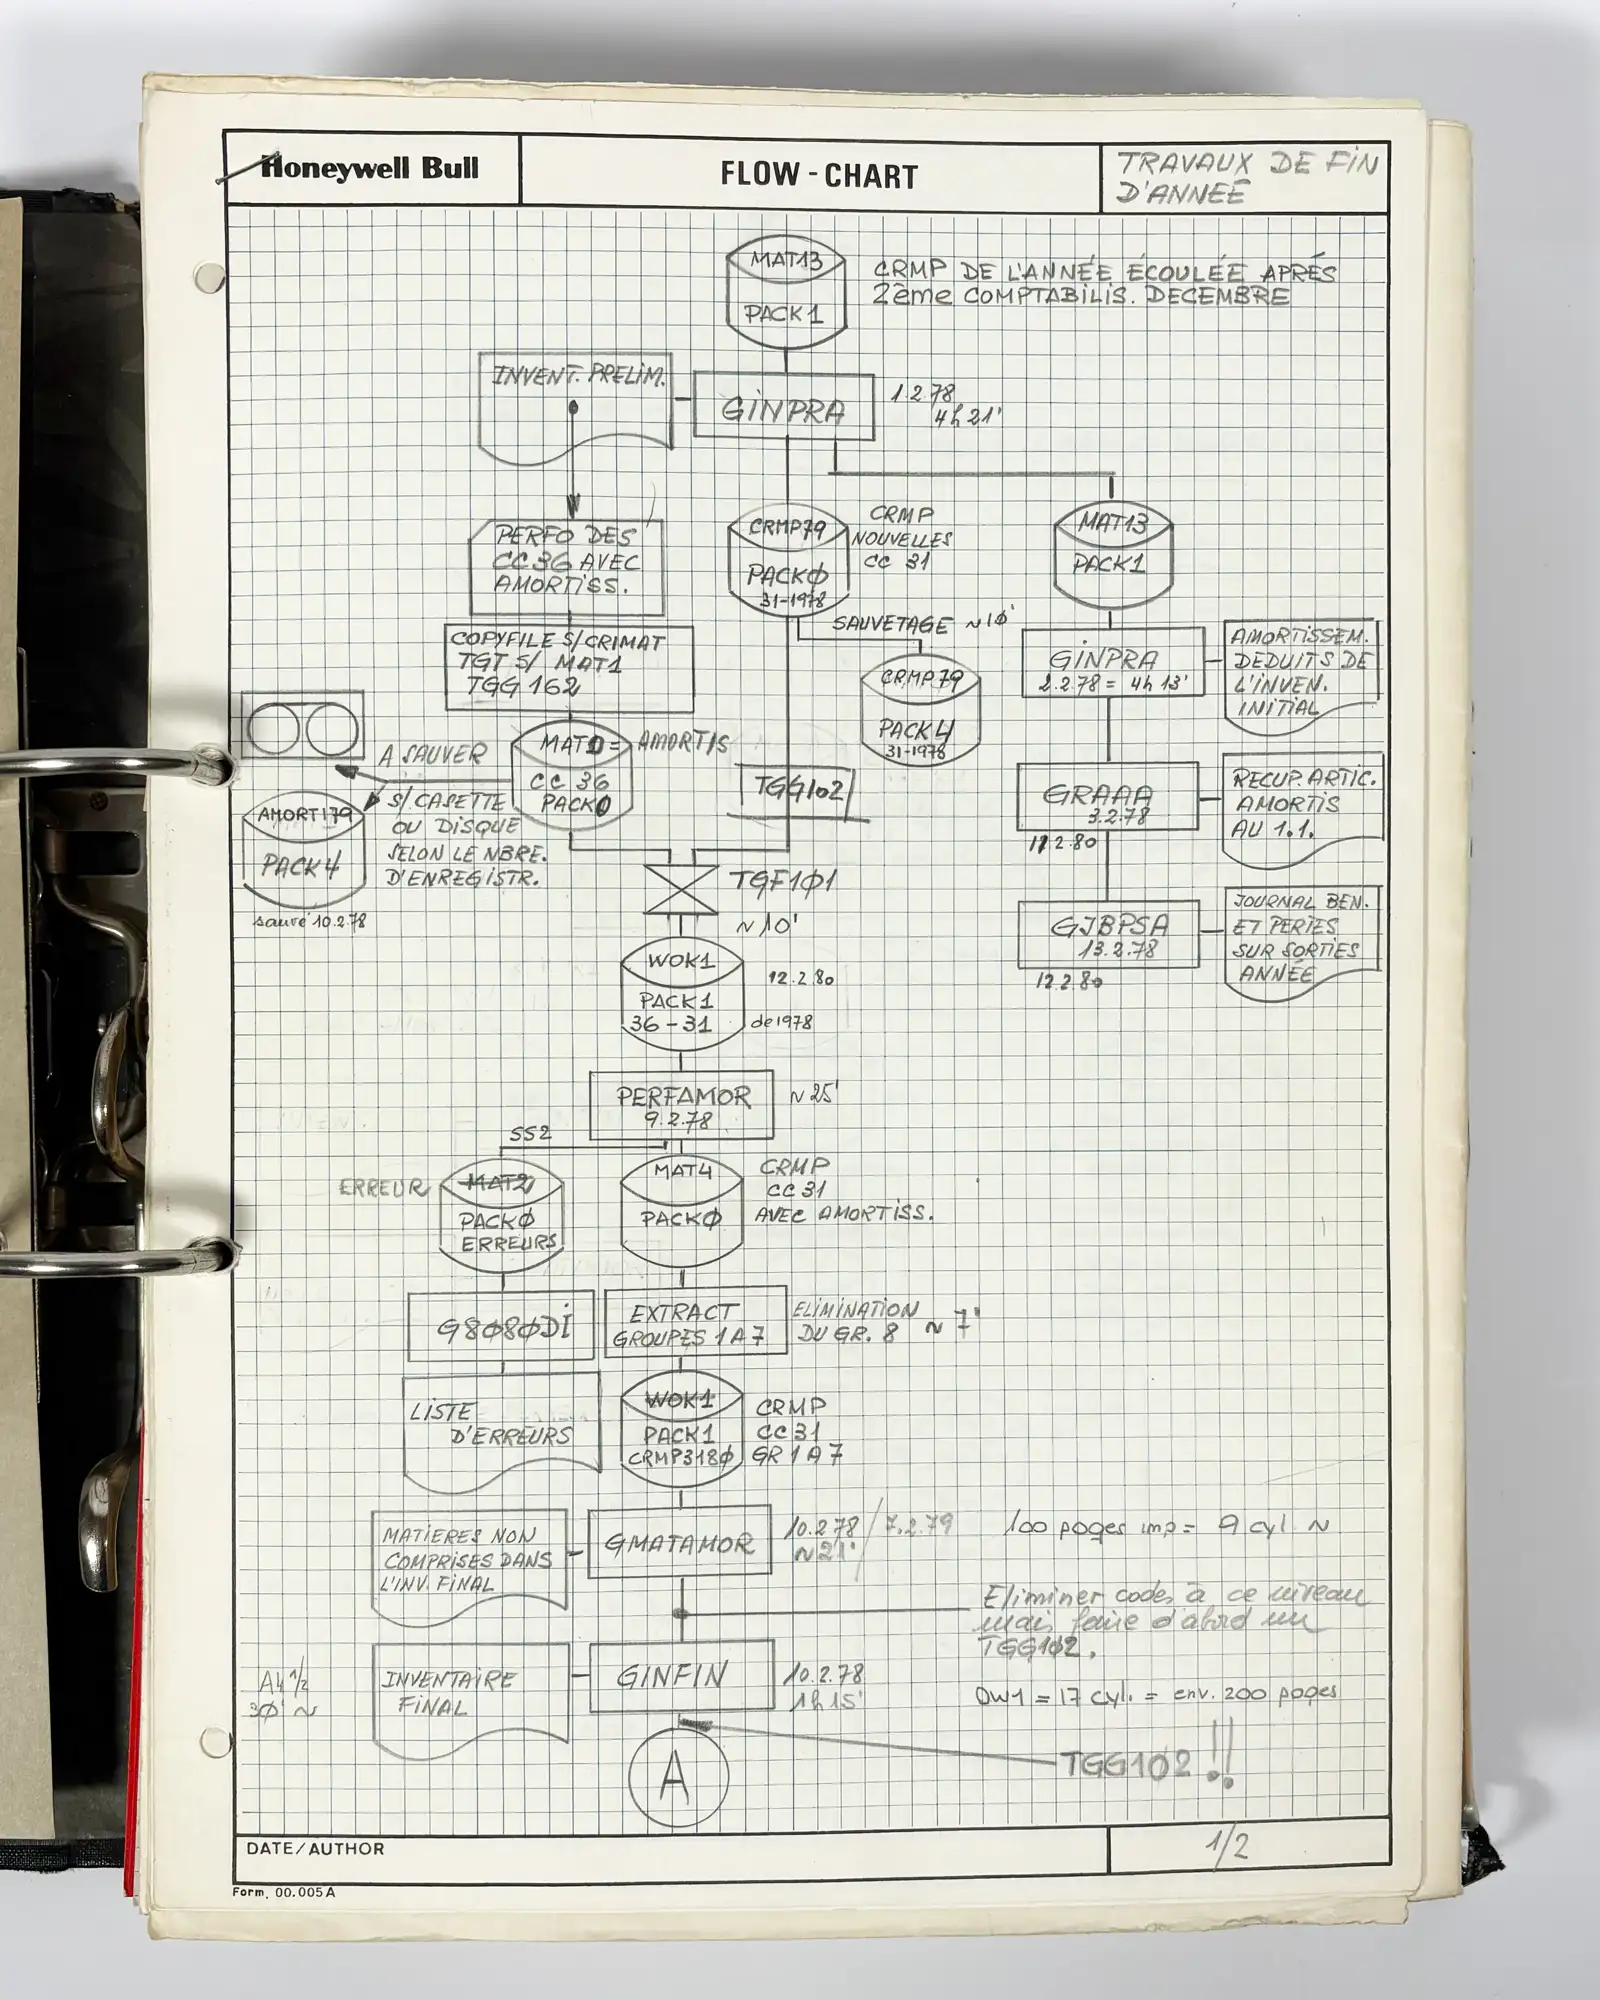 Honeywell Bull
FLOW - CHART
TRAVAUX DE FIN
D'ANNEÉ
MAT13
PACK1
CRMP DE L'ANNÉE ÉCOULÉE APRÉS
2ème COMPTABILIS. DECEMBRE
INVENT. PRELIM.
GINPRA
1.2.78
4h21'
PERFO DES
CC36 AVEC
AMORTISS.
CRMP79
PACKØ
31-1978
CRMP
NOUVELLES
CC 31
MAT13
PACK1
SAUVETAGE ~1Ø'
COPYFILE S/CRIMAT
TGT S/ MAT1
TGG162
CRMP79
PACK4
31-1978
GINPRA
2.2.78 = 4h 13'
AMORTISSEM.
DEDUITS DE
L'INVEN.
INITIAL
MAT0 = AMORTIS
CC 36
PACK0
A SAUVER
S/CASETTE
OU DISQUE
SELON LE NBRE.
D'ENREGISTR.
AMORTI79
PACK4
sauvé 10.2.78
TGG102
GRAAA
3.2.78
12.2.80
RECUP. ARTIC.
AMORTIS
AU 1.1.
TGF1Ø1
~10'
GJBPSA
13.2.78
12.2.80
JOURNAL BEN.
ET PERTES
SUR SORTIES
ANNÉE
WOK1
PACK1
36-31
12.2.80
de 1978
PERFAMOR
9.2.78
~25'
SS2
ERREUR
MAT2
PACKØ
ERREURS
MAT4
PACKØ
CRMP
CC31
AVEC AMORTISS.
G8Ø8ØDI
EXTRACT
GROUPES 1A7
ELIMINATION
DU GR. 8 ~7'
LISTE
D'ERREURS
WOK1
PACK1
CRMP318Ø
CRMP
CC31
GR 1A7
MATIERES NON
COMPRISES DANS
L'INV. FINAL
GMATAMOR
10.2.78 / 7.2.79
~21'
100 pages imp = 9 cyl ~
Eliminer codes à ce niveau
mais faire d'abord un
TGG1Ø2.
A4 1/2
3Ø' ~
INVENTAIRE
FINAL
GINFIN
10.2.78
1h15'
OW1 = 17 cyl. = env. 200 pages
A
TGG1Ø2 !!
DATE/AUTHOR
1/2
Form. 00.005A